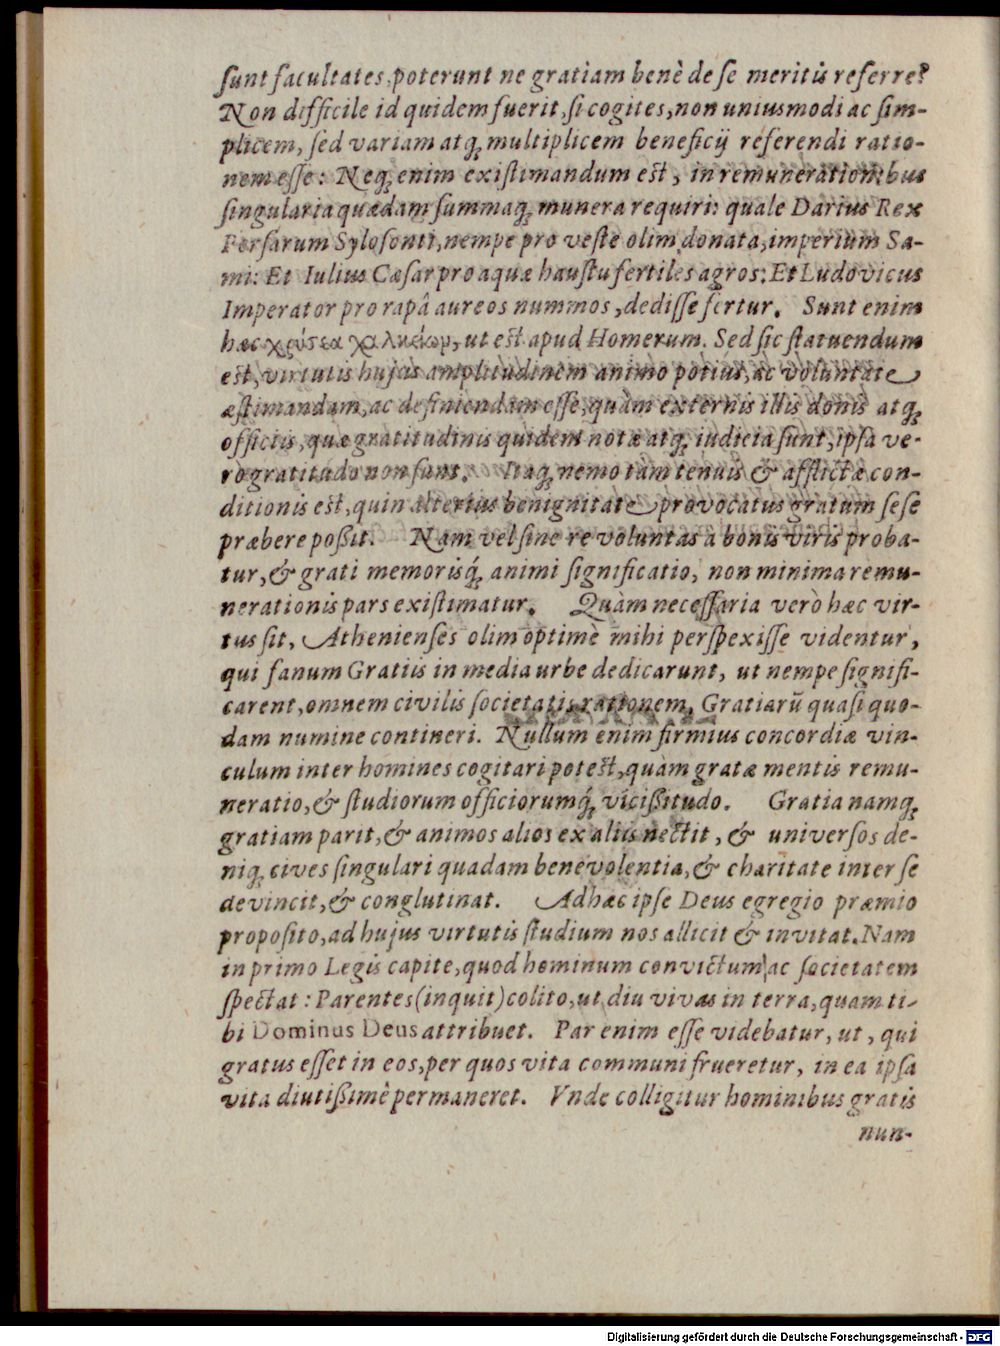 sunt facultates, poterunt ne gratiam benè de se meritis referre?
Non difficile id quidem fuerit, si cogites, non uniusmodi ac sim-
plicem, sed variam atq́; multiplicem beneficij referendi ratio-
nem esse: Neq́; enim existimandum est, in remunerationibus
singularia quædam summaq́; munera requiri: quale Darius Rex
Persarum Sylosonti, nempe pro veste olim donata, imperium Sa-
mi: Et Iulius Cæsar pro aquæ haustu fertiles agros: Et Ludovicus
Imperator pro rapâ aureos nummos, dedisse fertur. Sunt enim
hæc χρύσεα χαλκείων, ut est apud Homerum. Sed sic statuendum
est, virtutis hujus amplitudinem animo potius, ac voluntate
æstimandam, ac definiendam esse, quàm externis illis donis atq́;
officiis, quæ gratitudinis quidem notæ atq́; iudicia sunt, ipsa ve-
ro gratitudo non sunt. Itaq́; nemo tàm tenuis & afflictæ con-
ditionis est, quin alterius benignitate provocatus gratum sese
præbere poßit. Nam vel sine re voluntas à bonis viris proba-
tur, & grati memorisq́; animi significatio, non minima remu-
nerationis pars existimatur. Quàm necessaria verò hæc vir-
tus sit, Athenienses olim optimè mihi perspexisse videntur,
qui fanum Gratiis in media urbe dedicarunt, ut nempe signifi-
carent, omnem civilis societatis rationem, Gratiarū quasi quo-
dam numine contineri. Nullum enim firmius concordiæ vin-
culum inter homines cogitari potest, quàm gratæ mentis remu-
neratio, & studiorum officiorumq́; vicißitudo. Gratia namq́;
gratiam parit, & animos alios ex aliis nectit, & universos de-
niq́; cives singulari quadam benevolentia, & charitate inter se
devincit, & conglutinat. Ad hæc ipse Deus egregio præmio
proposito, ad hujus virtutis studium nos allicit & invitat. Nam
in primo Legis capite, quod hominum convictum ac societatem
spectat: Parentes (inquit) colito, ut diu vivas in terra, quam ti-
bi Dominus Deus attribuet. Par enim esse videbatur, ut, qui
gratus esset in eos, per quos vita communi frueretur, in ea ipsa
vita diutißimè permaneret. Vnde colligitur hominibus gratis
nun-
Digitalisierung gefördert durch die Deutsche Forschungsgemeinschaft - DFG